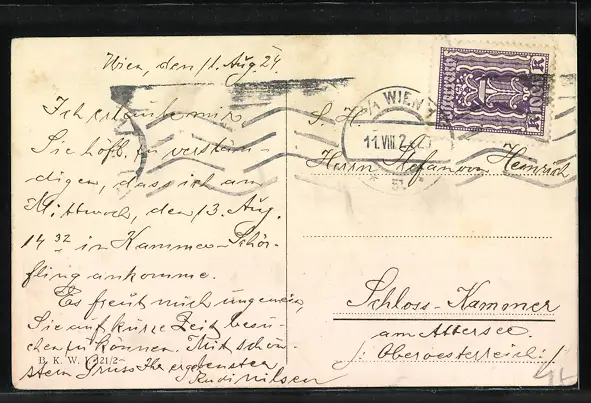 Wien, den 11. Aug. 24.
Ich erlaube mir
Sie höfl. zu verstän-
digen, dass ich am
Mittwoch, den 13. Aug.
14 32 in Kammer-Schör-
fling ankomme.
Es freut mich ungemein,
Sie auf kurze Zeit besu-
chen zu können. Mit schön-
stem Gruss Ihr ergebenster
Rudi Nilsen
B. K. W. I. 321/2
WIEN
11.VIII.2
S. H.
Herrn Stefan von Heinrich
Schloss-Kammer
am Attersee
/: Oberoesterreich :/